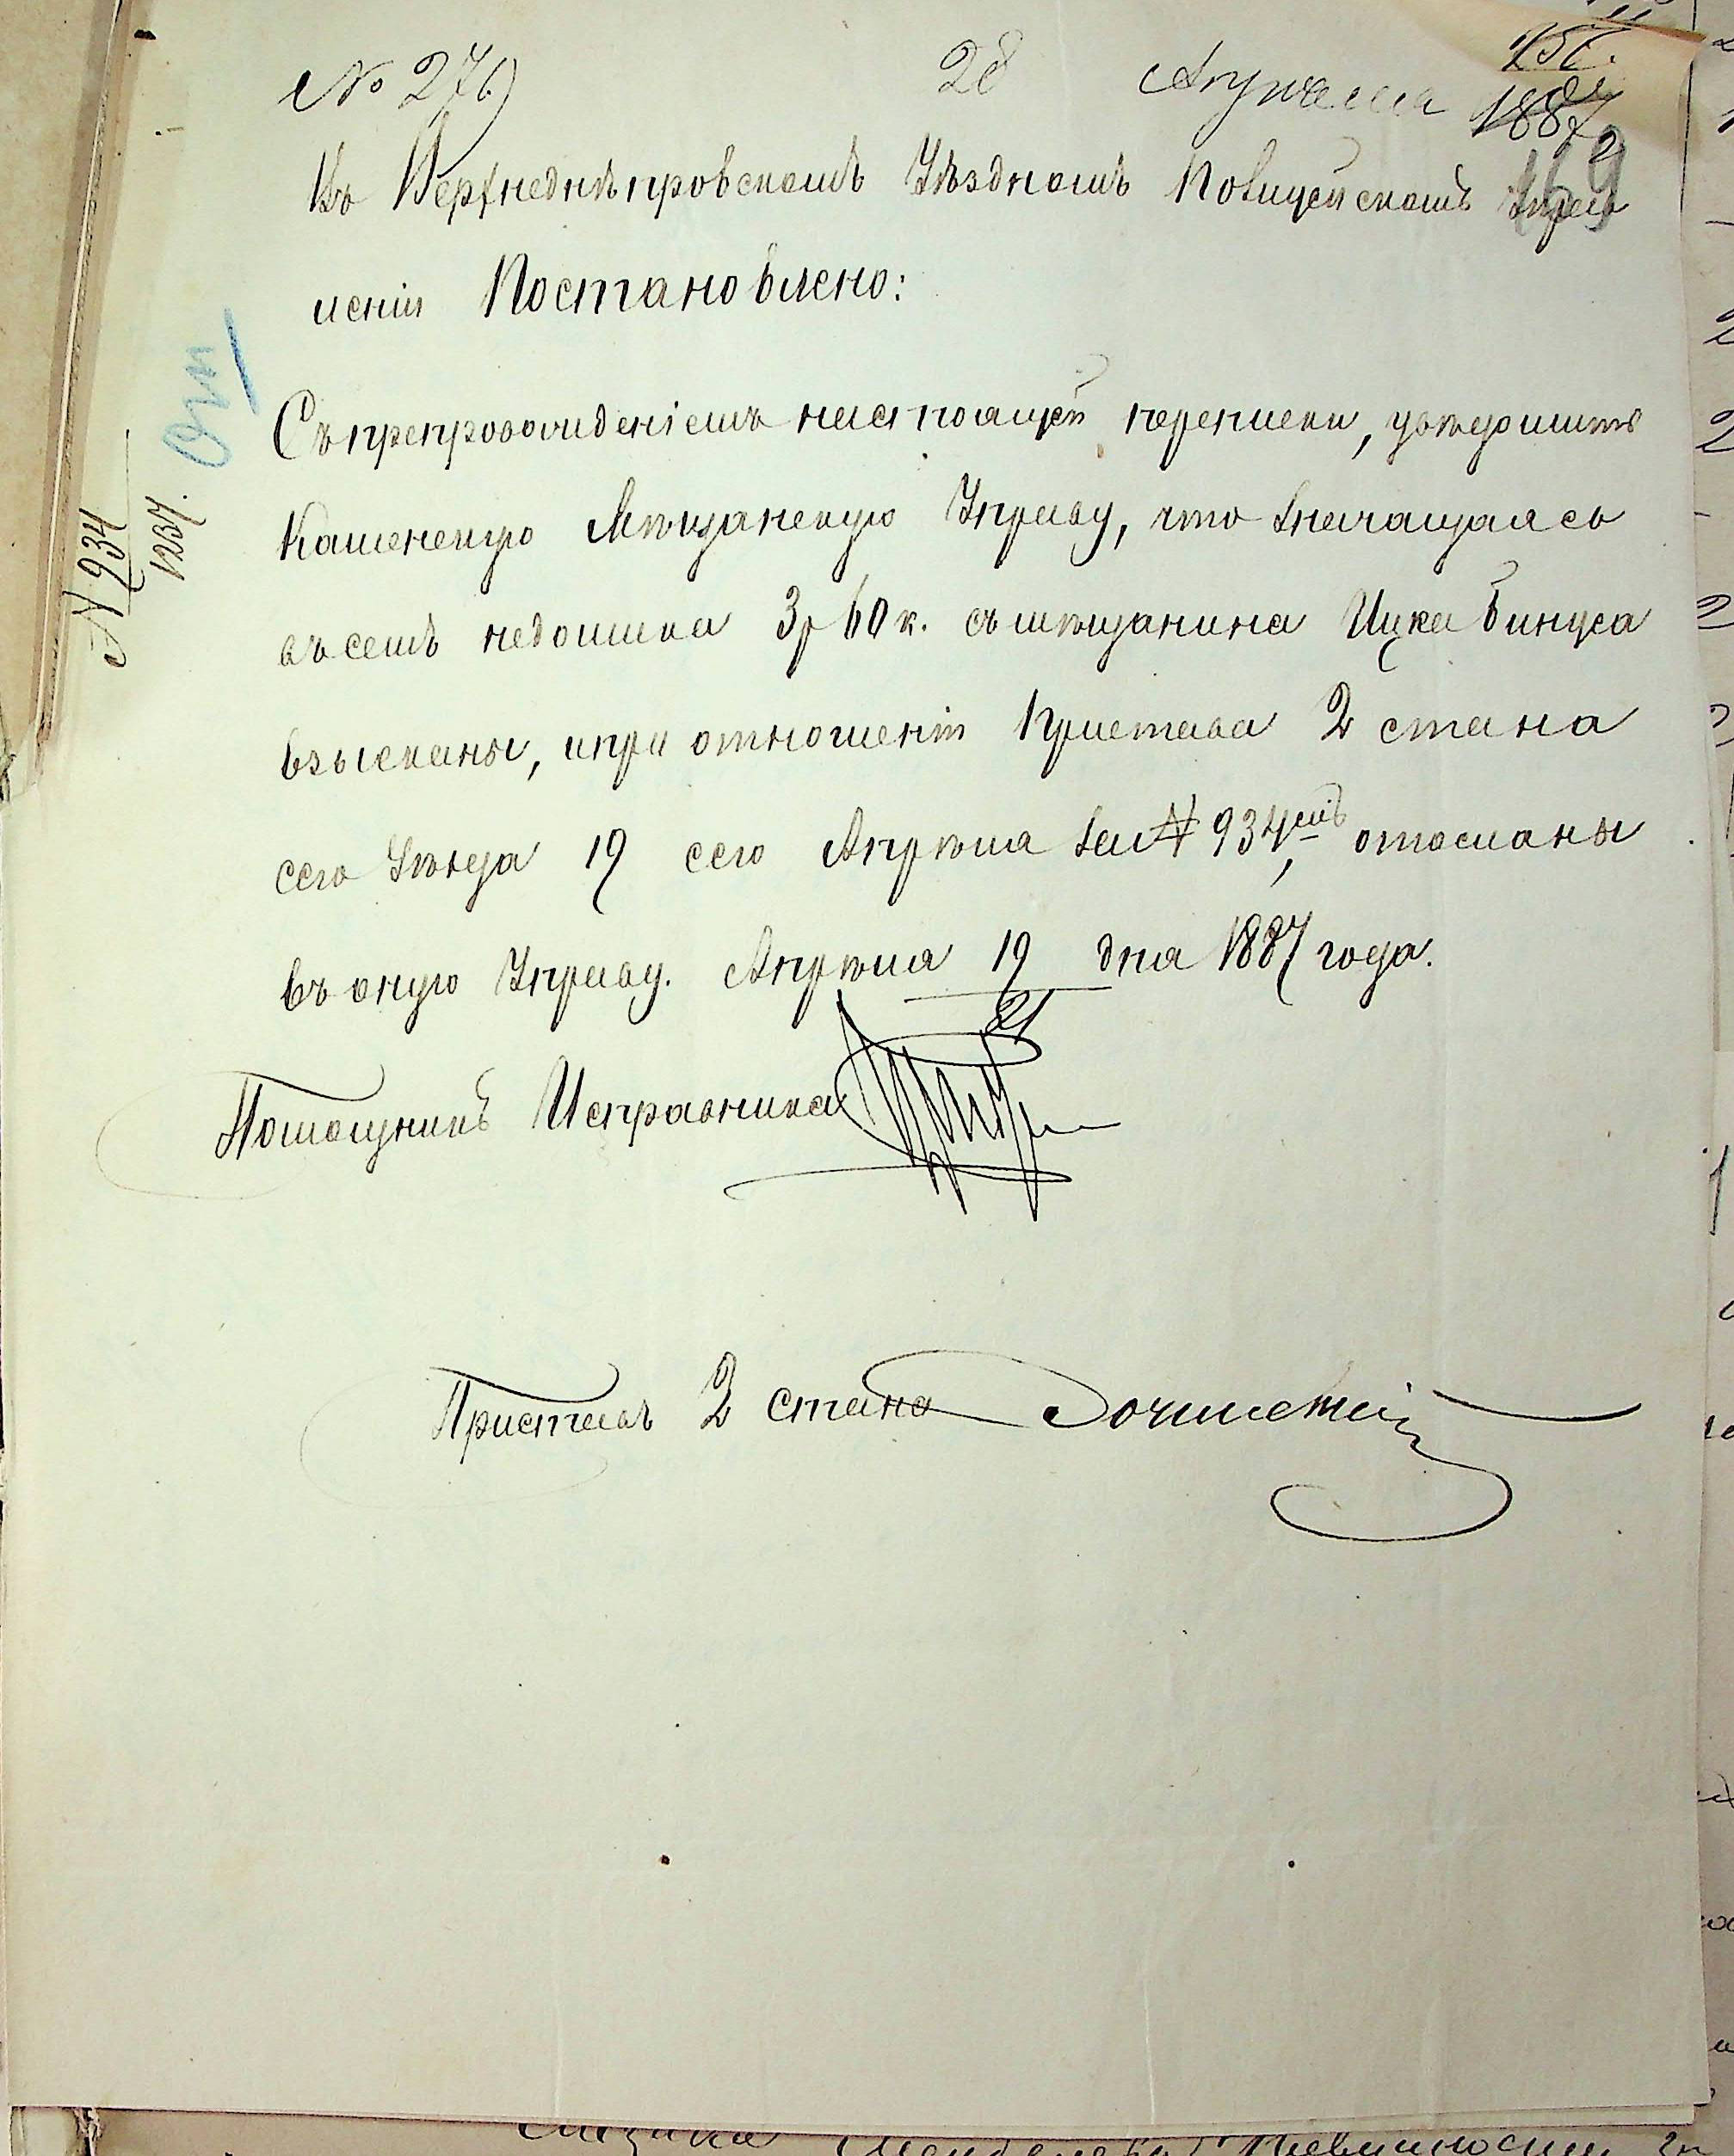 № 276)
28 Апреля 1887
Въ Верхнеднѣпровскомъ Уѣздномъ Полицейскомъ Управ
леніи Постановлено:
Съ препровожденіемъ настоящей переписки, увѣдомить
Каменскую Мѣщанскую Управу, что значащаяся
въ семъ недоимка 3 р 60 к. съ мѣщанина Ицка Бинуса
взысканы, и при отношеніи Пристава 2 стана
сего Уѣзда 19 сего Апрѣля за № 934, отосланы
въ оную Управу. Апрѣля 19 дня 1887 года.
21
Помощникъ Исправника
Приставъ 2 стана
№ 934
1237.
От